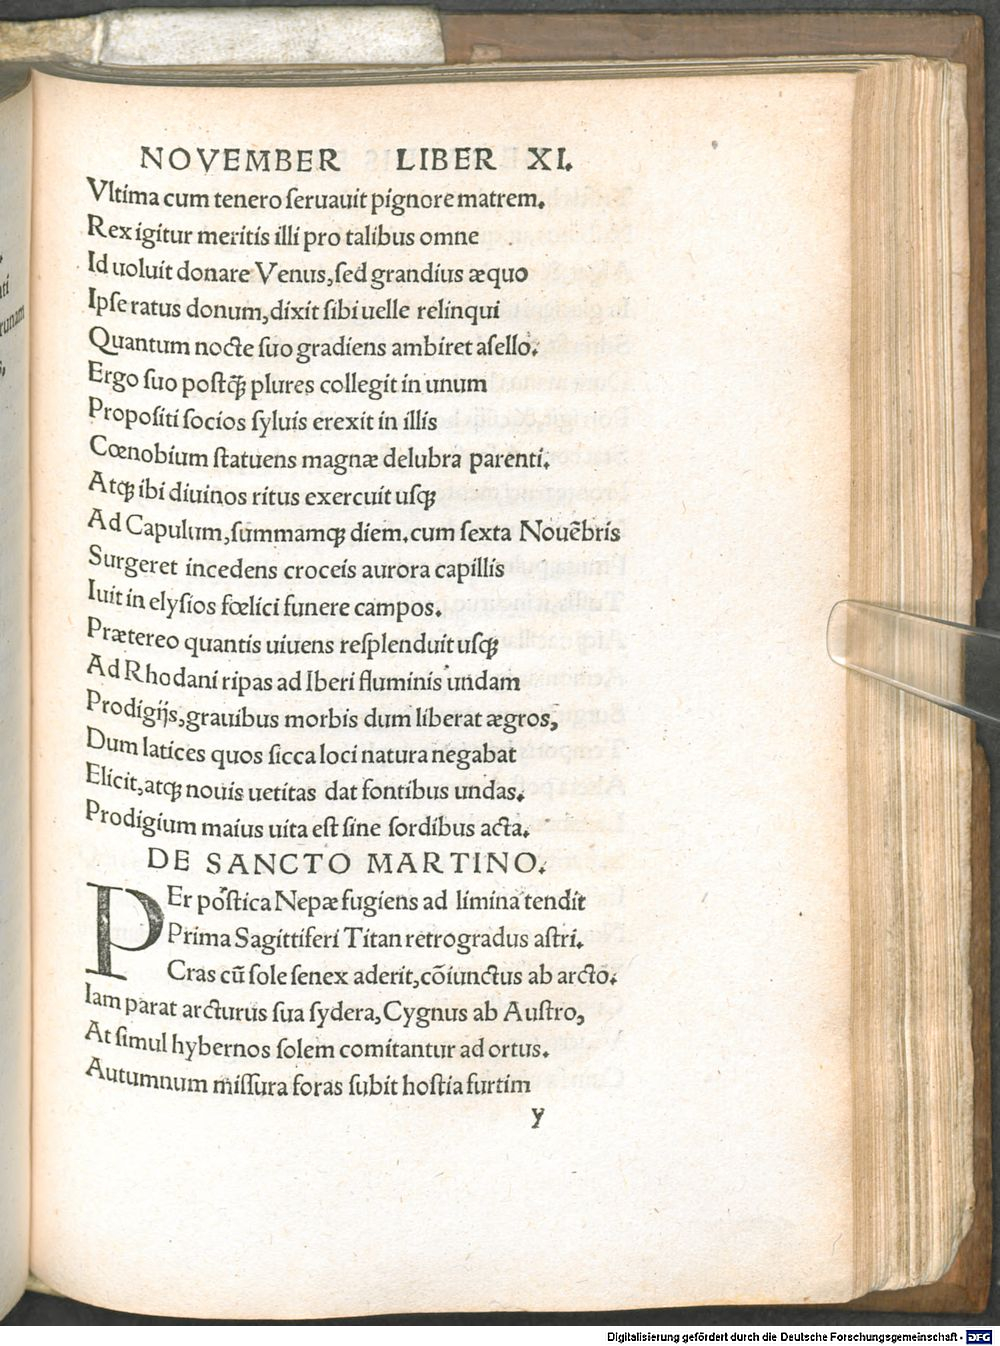 NOVEMBER LIBER XI.
Vltima cum tenero ſeruauit pignore matrem.
Rex igitur meritis illi pro talibus omne
Id uoluit donare Venus, ſed grandius æquo
Ipſe ratus donum, dixit ſibi uelle relinqui
Quantum nocte ſuo gradiens ambiret aſello.
Ergo ſuo poſtq̃ plures collegit in unum
Propoſiti ſocios ſyluis erexit in illis
Cœnobium ſtatuens magnæ delubra parenti.
Atqꝫ ibi diuinos ritus exercuit uſqꝫ
Ad Capulum, ſummamqꝫ diem. cum ſexta Nouẽbris
Surgeret incedens croceis aurora capillis
Iuit in elyſios fœlici funere campos.
Prætereo quantis uiuens reſplenduit uſqꝫ
Ad Rhodani ripas ad Iberi fluminis undam
Prodigijs, grauibus morbis dum liberat ægros,
Dum latices quos ſicca loci natura negabat
Elicit, atqꝫ nouis uetitas dat fontibus undas.
Prodigium maius uita eſt ſine ſordibus acta.
DE SANCTO MARTINO.
PEr poſtica Nepæ fugiens ad limina tendit
Prima Sagittiferi Titan retrogradus aſtri.
Cras cũ ſole ſenex aderit, cõiunctus ab arcto.
Iam parat arcturus ſua ſydera, Cygnus ab Auſtro,
At ſimul hybernos ſolem comitantur ad ortus.
Autumnum miſſura foras ſubit hoſtia furtim
y
ati
runam
Digitalisierung gefördert durch die Deutsche Forschungsgemeinschaft - DFG